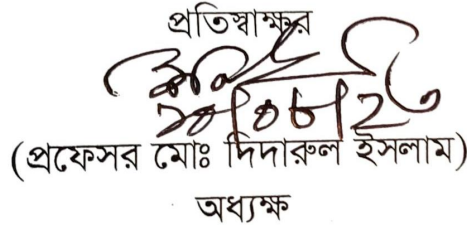 প্রতিস্বাক্ষর
(প্রফেসর মোঃ দিদারুল ইসলাম)
অধ্যক্ষ